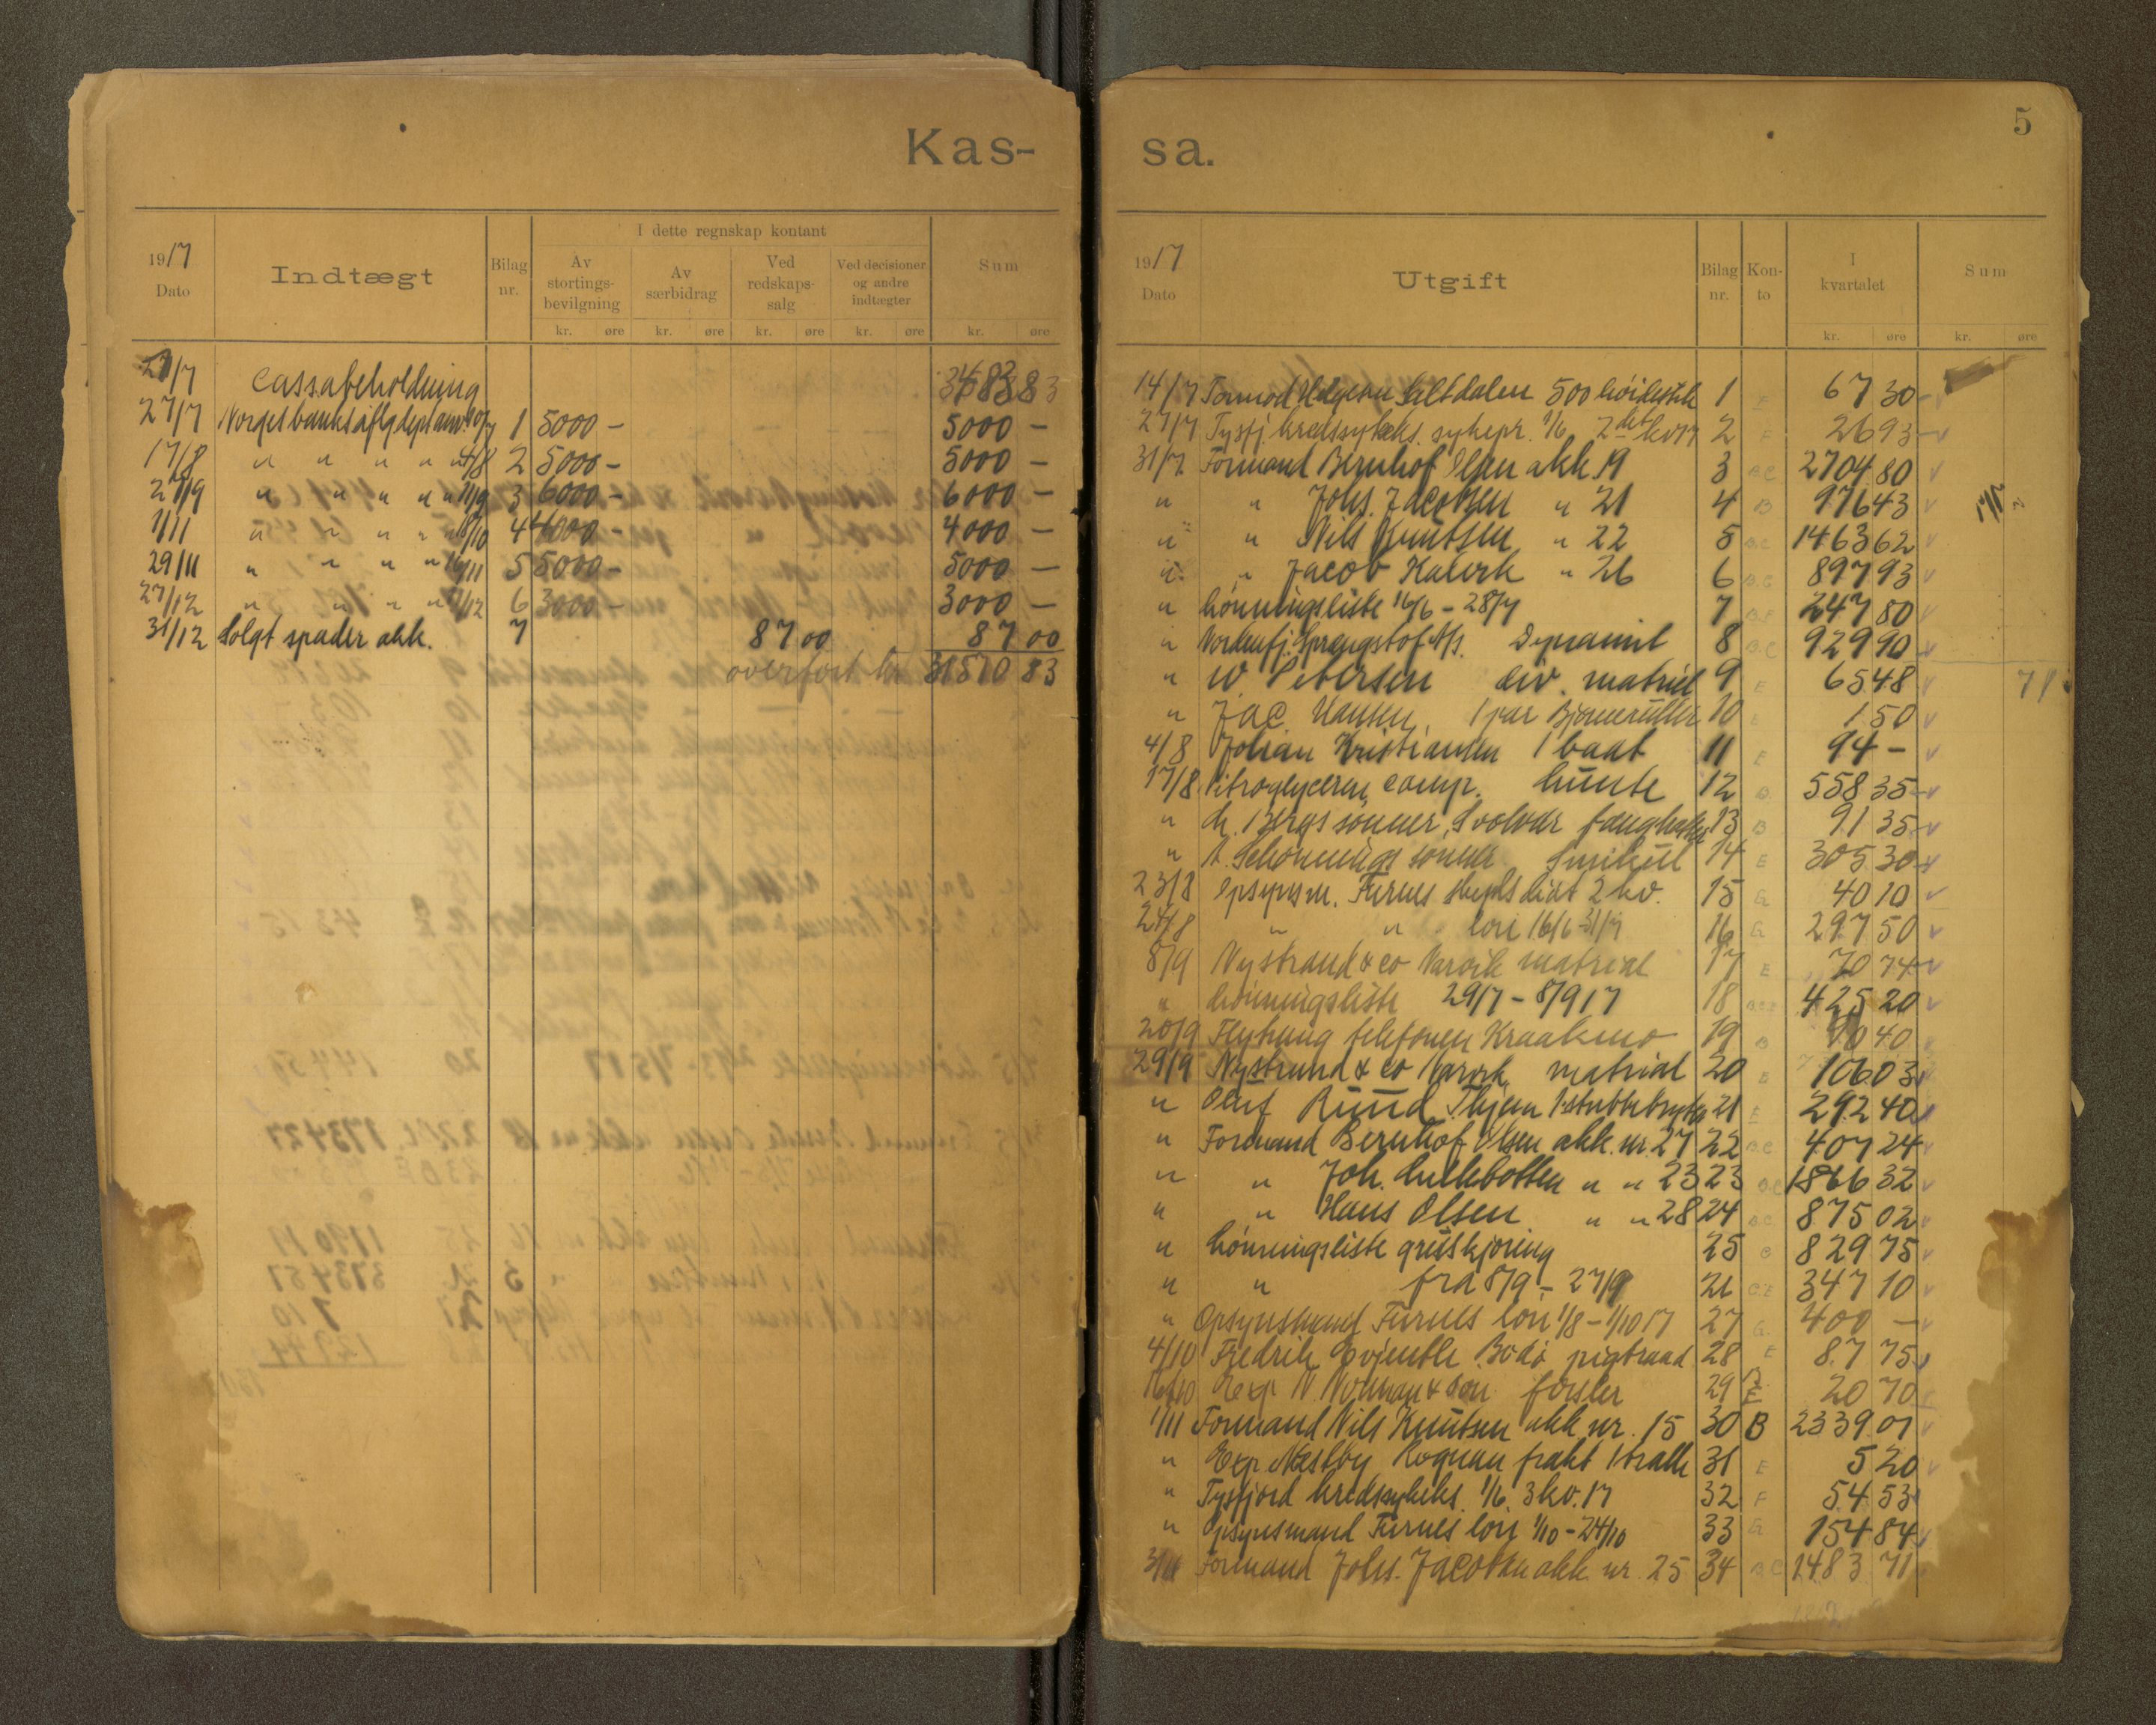 Kas-
1917
Dato
Indtægt
Bilag
nr.
I dette regnskap kontant
Av
stortings-
bevilgning
Av
særbidrag
Ved
redskaps-
salg
Ved decisioner
og andre
indtægter
Sum
kr. øre kr. øre kr. øre kr. øre kr. øre
27/7 Cassabeholdning 83
27/7 Norges banks 1 5000 – 5000 –
17/8 " " " " 4/8 2 5000 – 5000 –
27/9 " " " " 11/9 3 6000 – 6000 –
1/11 " " " " 18/10 4 4000 – 4000 –
29/11 " " " " 16/11 5 5000 – 5000 –
27/12 " " " " 6 3000 – 3000 –
31/12 Solgt spader akk. 7 87 00 87 00
overført kr 31510 83
sa.
5
1917
Dato
Utgift
Bilag
nr.
Kon-
to
I
kvartalet
Sum
kr. øre kr. øre
14/7 Saltdalen 500 1 67 30
27/7 Tysfj. kredssykeks. sykepr. 1/6 2det kv 17 2 F 26 93
31/7 Formand Bernhof Olsen akk 19 3 B.C 2704 80
" " Johs. Jacobsen " 21 4 B 976 43
" " Nils Knutsen " 22 5 B.C 1463 62
" " Jacob " 26 6 B.C 897 93
" Lønningsliste 16/6 – 28/7 7 247 80
" Nordenfj. Sprengstof A/s. Dynamit 8 B.C 929 90
" W. Petersen div. matriel 9 E 65 48
" Jac. Hansen, 1 par 10 E 1 50
4/8 Johan Kristiansen 1 baat 11 E 94 –
17/8 Nitroglycerin comp. Lunte 12 B 558 35
" Bergs sønner, Svolvær fænghetter 13 B 91 35
" Schønnings sønner Smikul 14 E 305 30
23/8 Opsynsm. Furnes skyds diæt 2 kv. 15 G 40 10
24/8 " " løn 16/6 – 31/7 16 G 297 50
8/9 Nystrand & co Narvik matrial 17 E 70 74
" Lønningsliste 29/7 – 8/9 17 18 425 20
20/9 Flytning telefonen Kraakmo 19 B 40
29/9 Nystrand & co Narvik matrial 20 E 106 03
" Oluf Ruud, 1 stubbebryter 21 E 292 40
" Formand Bernhof Olsen akk. nr. 27 22 B.C 407 24
" " Joh. Lillebotten " " 23 23 B.C 1866 32
" " Hans Olsen " " 28 24 B.C 875 02
" Lønningsliste gruskjøring 25 B 829 75
" " fra 8/9 – 27/9 26 347 10
" Opsynsmand Furnes løn 1/8 – 1/10 17 27 G. 400 –
4/10 Fredrik Evjenth Bodø pigtraad 28 E 87 75
16/10 Exp N Norman & søn førsler 29 E 20 70
1/11 Formand Nils Knutsen akk nr. 15 30 B 2339 01
" Exp. Næstby Rognan frakt 1 tralle 31 E 5 20
" Tysfjord kredssykeks. 1/6. 3 kv. 17 32 F 54 53
" Opsynsmand Furnes løn 1/10 – 24/10 33 G 154 84
3/11 Formand Johs. Jacobsen akk nr. 25 34 B.C 1483 71